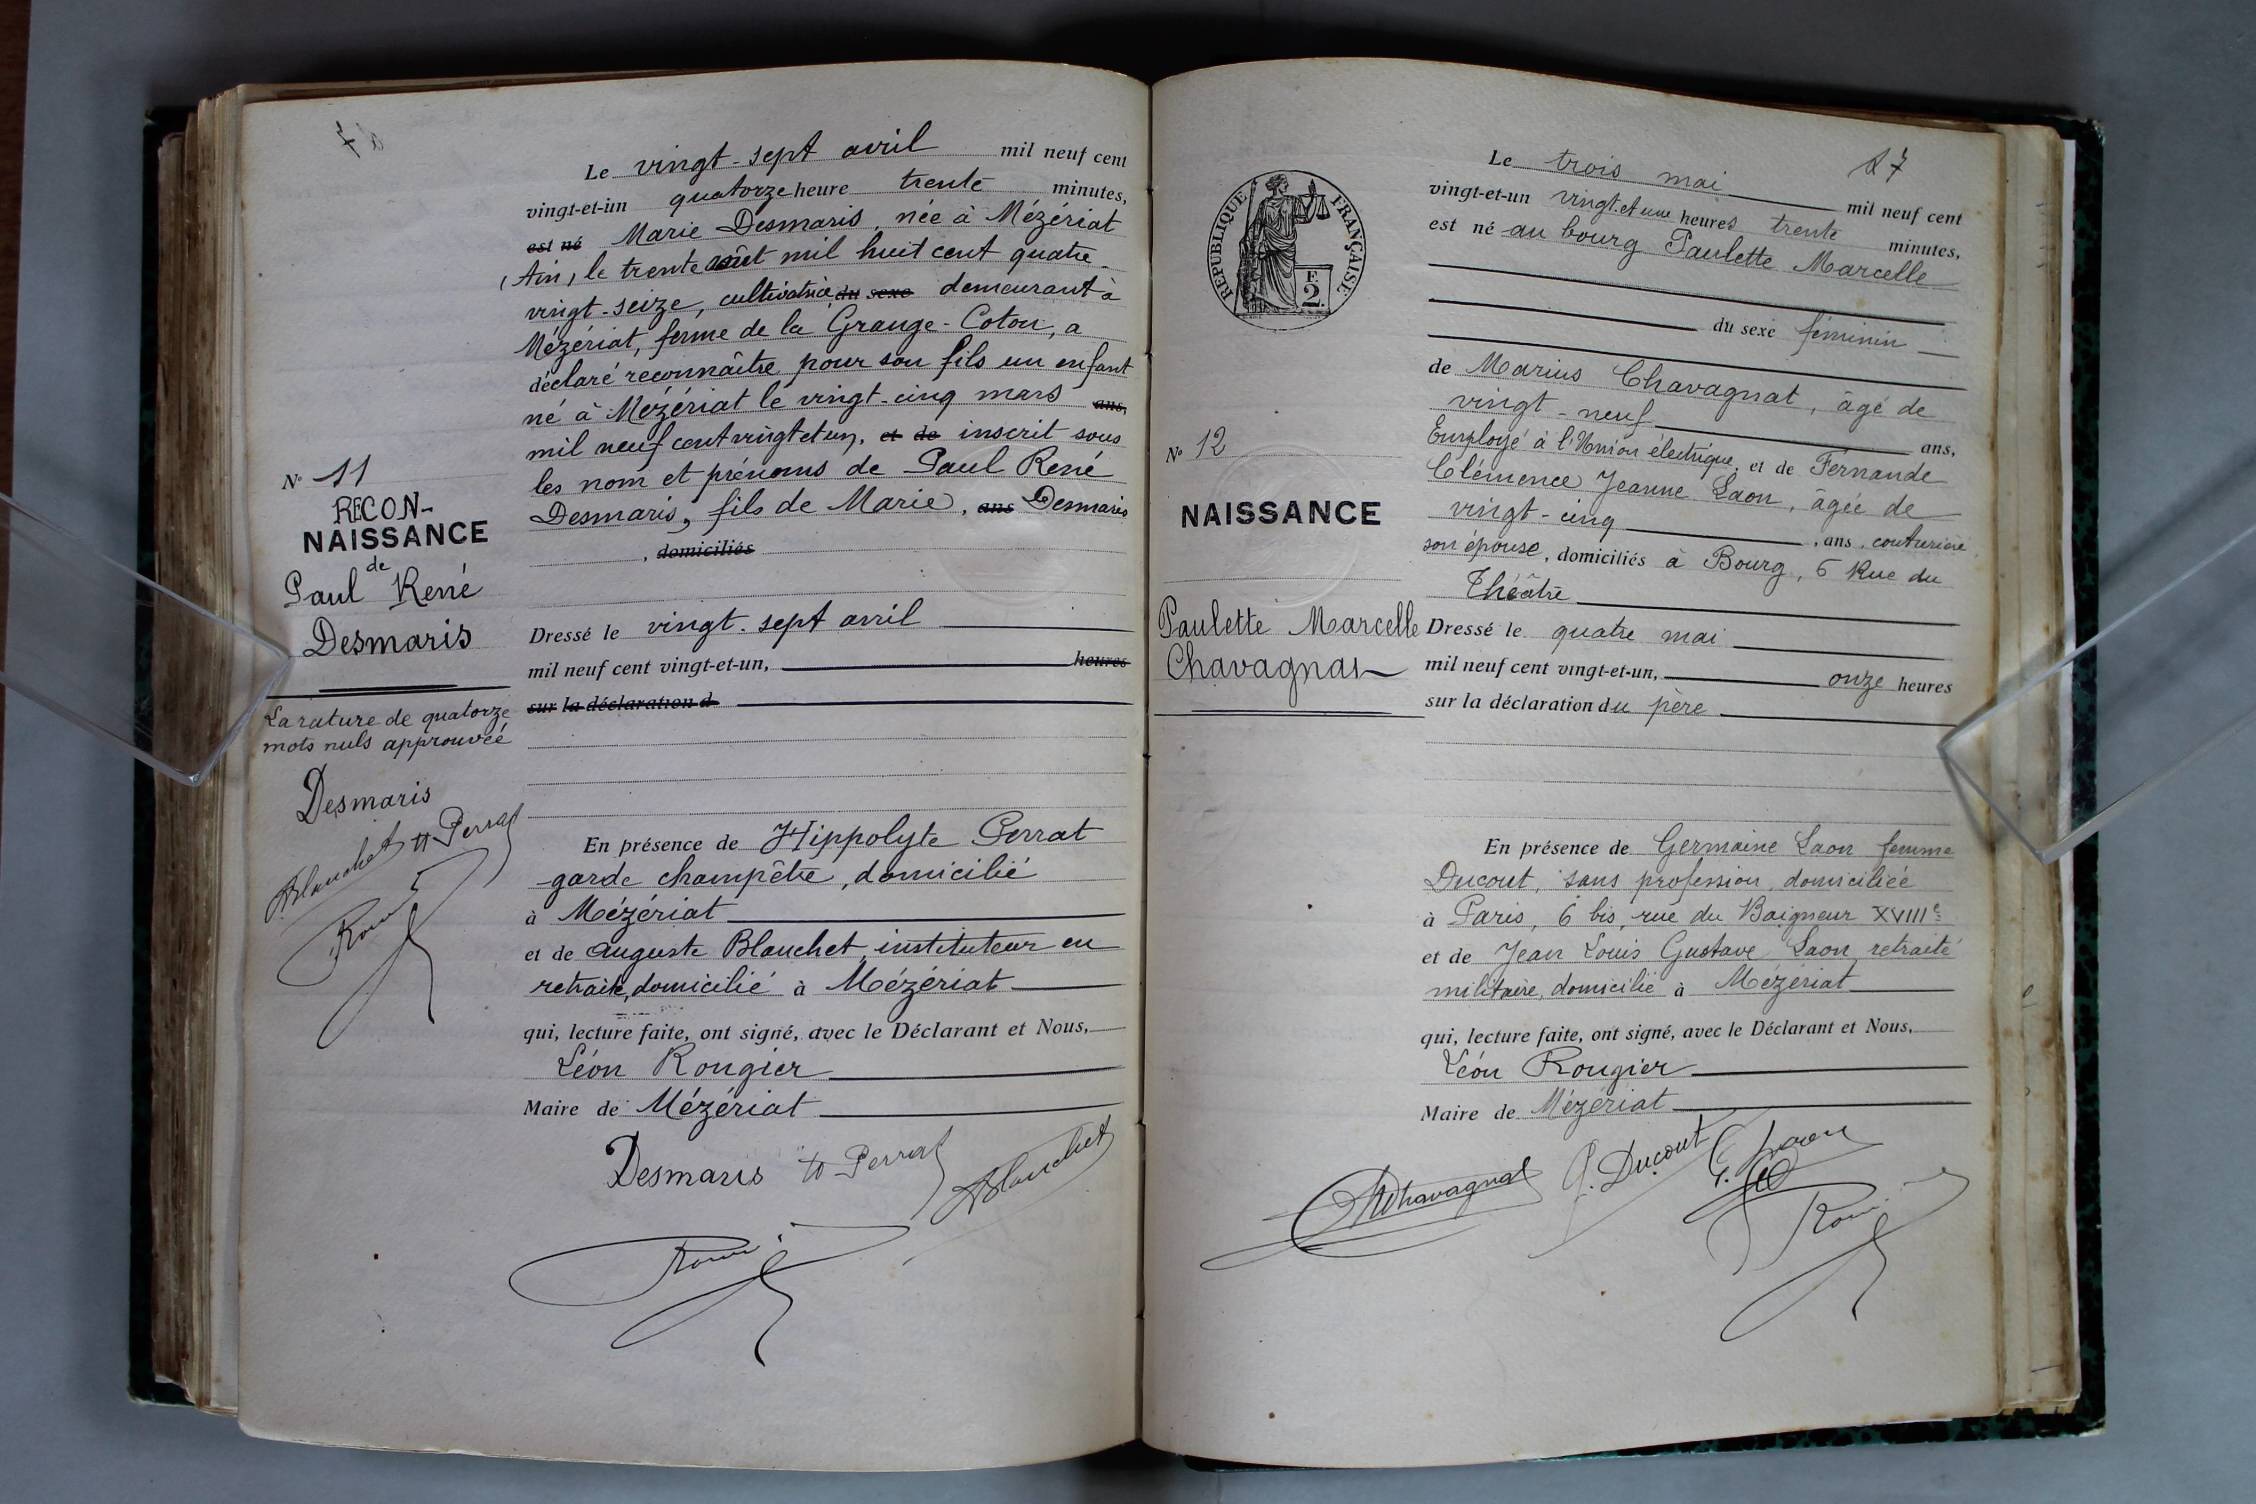 Le vingt-sept avril mil neuf cent
vingt-et-un quatorze heure trente minutes,
est né Marie Desmaris, née à Mézériat
(Ain, le trente août mil huit cent quatre-
vingt-seize, cultivatrice, du sexe demeurant à
Mézériat, ferme de la Grange-Coton, a
déclaré reconnaître pour son fils un enfant
né à Mézériat le vingt-cinq mars ans,
mil neuf cent vingt et un, et de inscrit sous
les nom et prénoms de Paul René
Desmaris, fils de Marie, ans Desmaris
, domiciliés
Dressé le vingt-sept avril
mil neuf cent vingt-et-un, heures
sur la déclaration d
En présence de Hippolyte Perrat
garde champêtre, domicilié
à Mézériat
et de Auguste Blanchet, instituteur en
retraite, domicilié à Mézériat
qui, lecture faite, ont signé, avec le Déclarant et Nous,
Léon Rougier
Maire de Mézériat
Desmaris H Perrat ABlanchet
N° 11
RECON-
NAISSANCE
de
Paul René
Desmaris
La rature de quatorze
mots nuls approuvée
Desmaris
ABlanchet H Perrat
27
RÉPUBLIQUE FRANÇAISE
F.
2.
Le trois mai mil neuf cent
vingt-et-un vingt et une heures trente minutes,
est né au bourg Paulette Marcelle
du sexe féminin
de Marius Chavagnat, âgé de
vingt-neuf ans,
Employé à l'Union électrique, et de Fernande
Clémence Jeanne Laon, âgée de
vingt-cinq, ans, couturière
son épouse, domiciliés à Bourg, 6 Rue du
Théâtre
Dressé le quatre mai
mil neuf cent vingt-et-un, onze heures
sur la déclaration du père
En présence de Germaine Laon femme
Ducout, sans profession, domiciliée
à Paris, 6 bis, rue du Baigneur XVIIIe
et de Jean Louis Gustave Laon retraité
militaire, domicilié à Mézériat
qui, lecture faite, ont signé, avec le Déclarant et Nous,
Léon Rougier
Maire de Mézériat
MChavagnat G. Ducout G. Laon
N° 12
NAISSANCE
Paulette Marcelle
Chavagnat